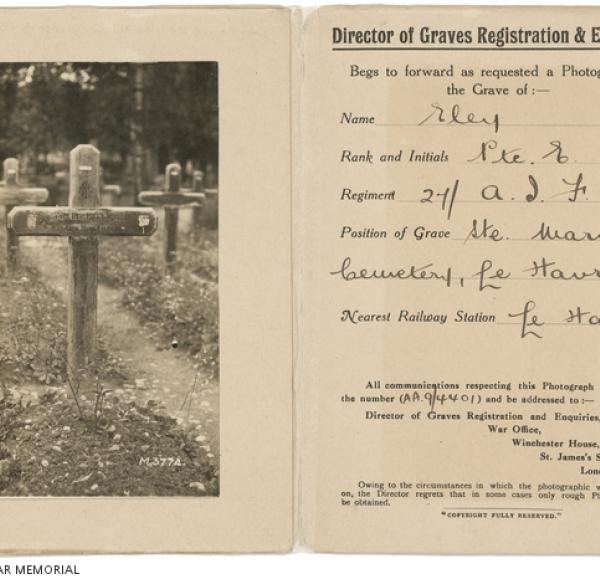 M.3774.
Director of Graves Registration & E
Begs to forward as requested a Photog
the Grave of :—
Name Eley
Rank and Initials Pte. E.
Regiment 24/ A. I. F.
Position of Grave Ste. Mari
Cemetery, Le Havr
Nearest Railway Station Le Ha
All communications respecting this Photograph
the number (AA.9/4401) and be addressed to :—
Director of Graves Registration and Enquiries,
War Office,
Winchester House,
St. James's S
Lon
Owing to the circumstances in which the photographic w
on, the Director regrets that in some cases only rough P
be obtained.
"COPYRIGHT FULLY RESERVED."
AR MEMORIAL